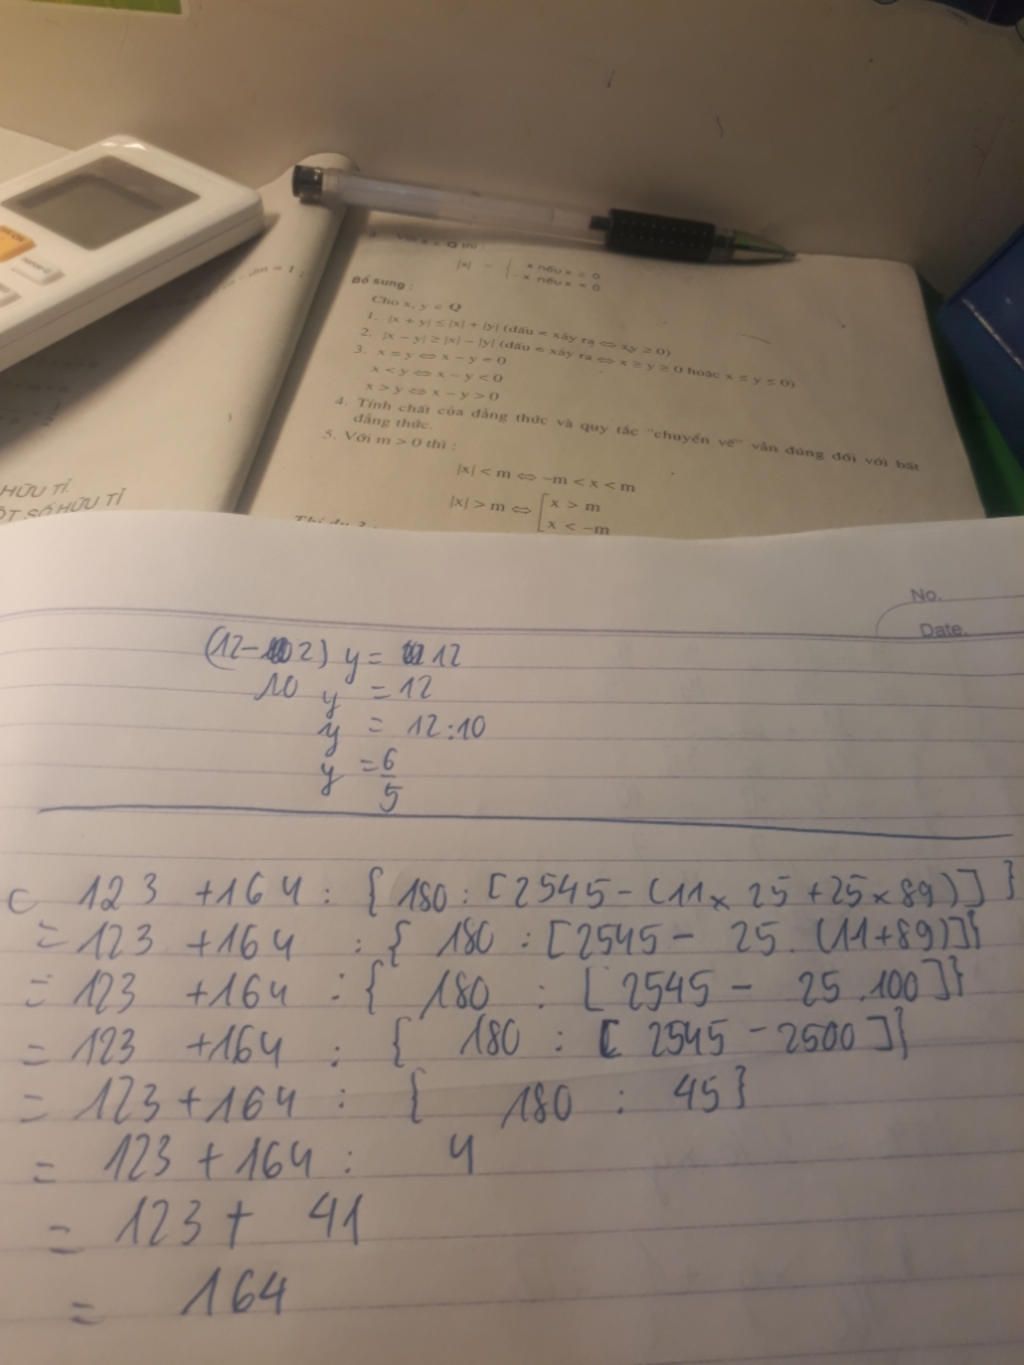 |x| = { x nếu x ≥ 0
-x nếu x < 0
Bổ sung :
Cho x, y ∈ Q
1. |x + y| ≤ |x| + |y| (dấu = xảy ra ⇔ xy ≥ 0)
2. |x − y| ≥ |x| − |y| (dấu = xảy ra ⇔ x ≥ y ≥ 0 hoặc x ≤ y ≤ 0)
3. x = y ⇔ x − y = 0
x < y ⇔ x − y < 0
x > y ⇔ x − y > 0
4. Tính chất của đẳng thức và quy tắc "chuyển vế" vẫn đúng đối với bất
đẳng thức.
5. Với m > 0 thì :
|x| < m ⇔ −m < x < m
|x| > m ⇔ [ x > m
x < −m
HỮU TỈ
SỐ HỮU TỈ
No.
Date.
(12-2) y = 12
10 y = 12
y = 12:10
y = 6/5
C 123 +164 : { 180 : [2545-(11 x 25 +25 x 89)] }
= 123 +164 : { 180 : [2545- 25. (11+89)]}
= 123 +164 : { 180 : [ 2545 - 25 .100 ]}
= 123 +164 : { 180 : [ 2545 -2500 ]}
= 123+164 : { 180 : 45}
= 123+164 : 4
= 123+ 41
= 164